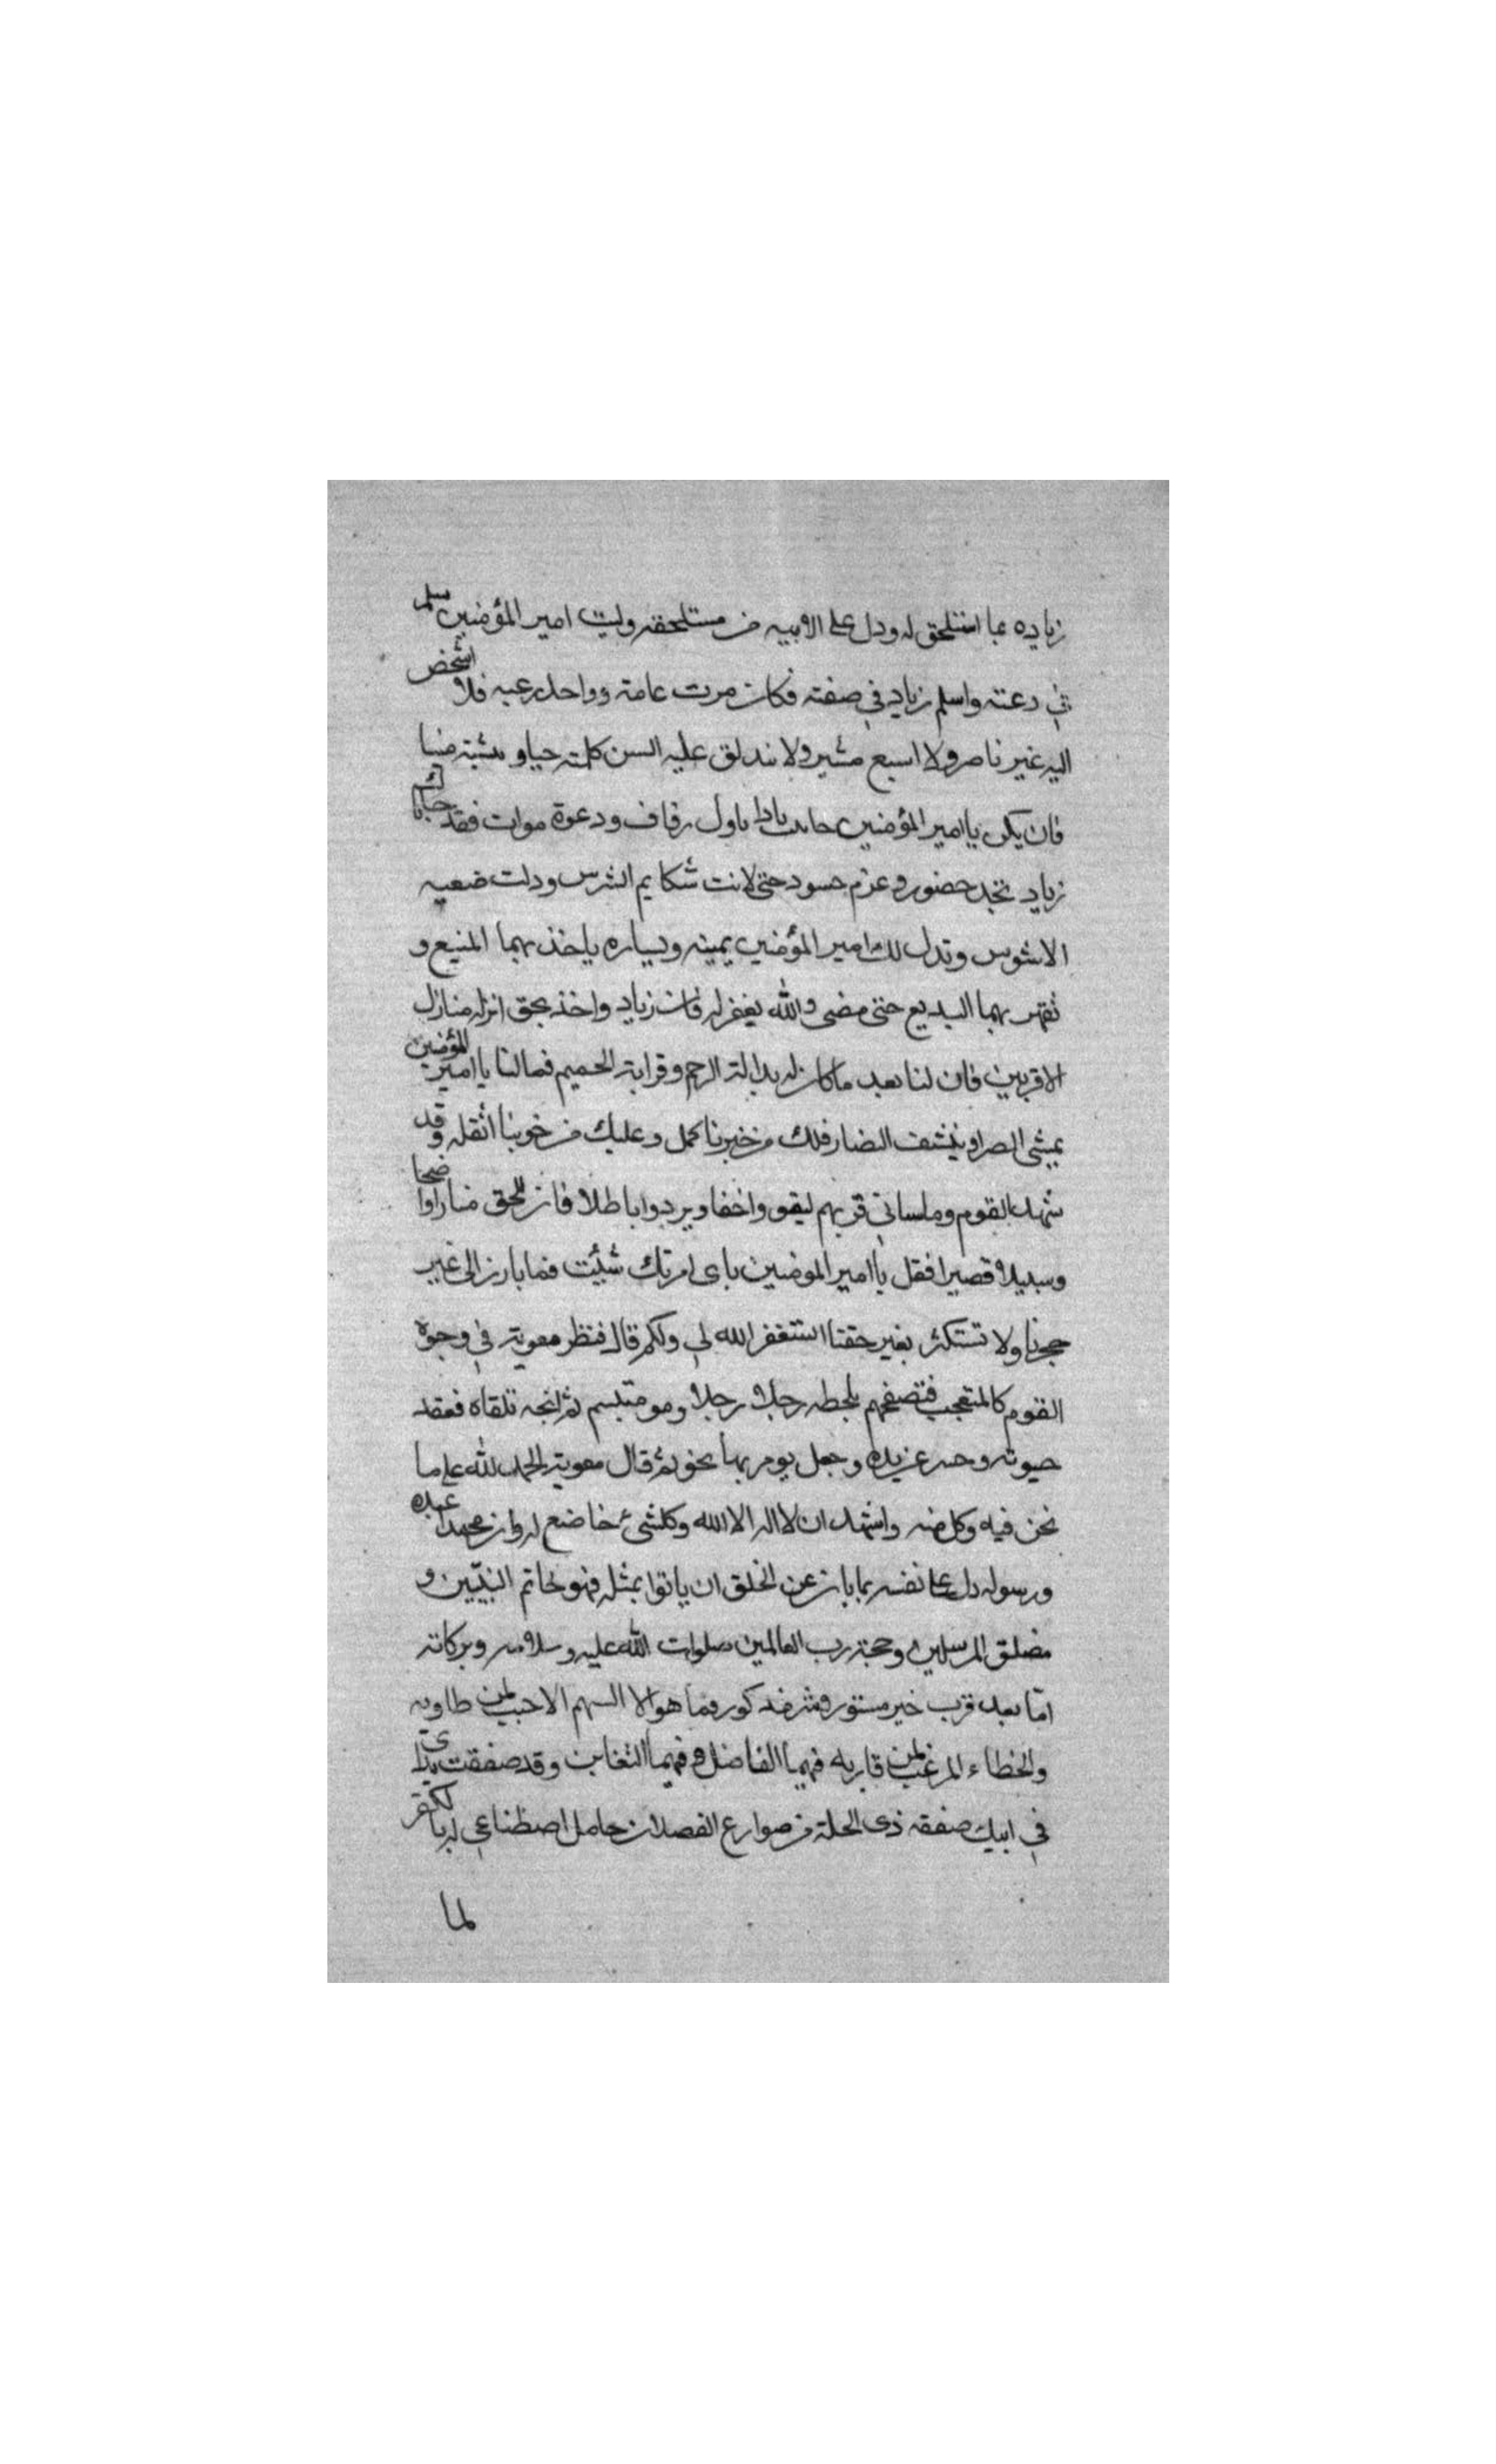 زياده عما استلحق له ودل على الابيه من مستلحقه وليت امير المؤمنين سلم
في دعته واسلم زياد في صفته فكان مرت عامة وواحد رعيه فلا اشخص
اليه غير ناصر ولا اسبع مشير ولا تندلق عليه السن كلمته حيا و ميتا
فان يكن يا امير المؤمنين باول رفاف ودعوة موات فقد
زياد بجد حضور و عزم حسود حتى لانت شكايم الشرس وذلت صعبه
الاشوس وتدل لك امير المؤمنين يمينه ويساره ياخذ بهما المنيع و
تقهر بهما البديع حتى مضى والله يغفر له فان زياد واخذ بحق انزله منازل
الاقربين فان لنا بعد ما كان له بدالة الرحم وقرابة الحميم فمالنا يا امير المؤمنين
يمشى الضار فلك من خيرنا كمل وعليك من حوبنا اثقله وقد
شهد القوم وما ساني قربهم ليقو واحقا ويردوا باطلا فان للحق منارا واضحا
وسبيلا قصيرا فقل يا امير المومنين باى امرتك شئت فما بارز الى غير
حجرنا ولا تستكثر بغير حقنا استغفر الله لي ولكم قال فنظر معوية في وجوه
القوم كالمتعجب فتصفحهم بلحظه رجلا رجلا وهو متبسم ثم اتجه تلقاه فعقد
حبوته وحسر عن يده وجعل يومي بها نحوه ثم قال معوية الحمد لله على ما
نحن فيه وكل منه واشهد ان لا اله الا الله وكلشىء خاضع له وان محمدا عبده
ورسوله دل على نفسه بما بان عن الخلق ان ياتوا بمثله فهو خاتم النبيين و
مصدق المرسلين وحجة رب العالمين صلوات الله عليه وسلامه وبركاته
اما بعد فرب خير مستور وشر مذكور فما هو الا السهم الاخيب لمن طاوبه
والخطاء المرغب لمن قاربه فهما الفاضل و فيهما التغابن وقد صفقت يداى
في ابيك صفقة ذى الحلة من صوارع الفصلان حامل اصطناعي له بالكفر
لما